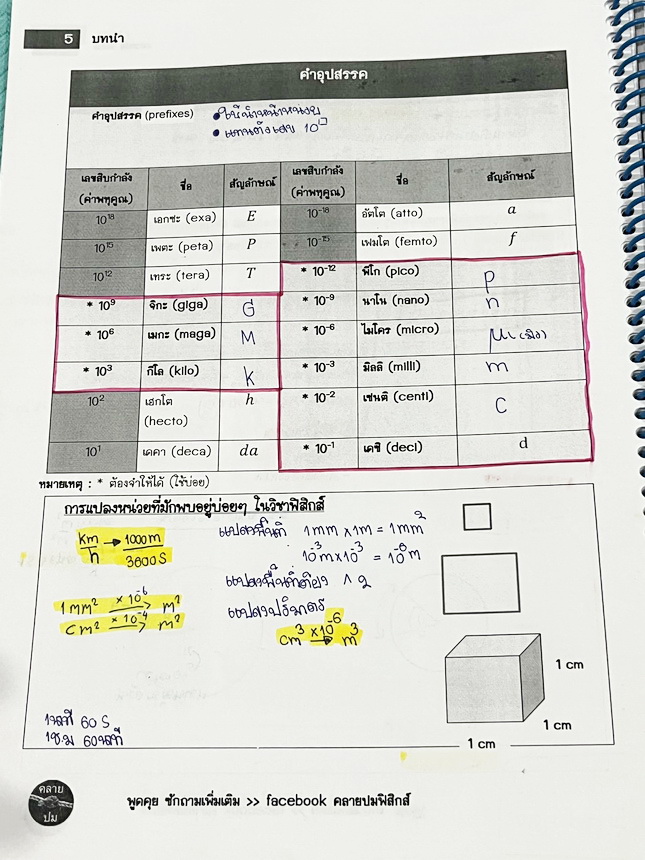 5 บทนำ
คำอุปสรรค
คำอุปสรรค (prefixes) • ใช้นำหน้าหน่วย
• แทนตัวเลข 10□
เลขสิบกำลัง (ค่าพหุคูณ) ชื่อ สัญลักษณ์ เลขสิบกำลัง (ค่าพหุคูณ) ชื่อ สัญลักษณ์
10¹⁸ เอกซะ (exa) E 10⁻¹⁸ อัตโต (atto) a
10¹⁵ เพตะ (peta) P 10⁻¹⁵ เฟมโต (femto) f
10¹² เทระ (tera) T * 10⁻¹² พิโก (pico) p
* 10⁹ จิกะ (giga) G * 10⁻⁹ นาโน (nano) n
* 10⁶ เมกะ (maga) M * 10⁻⁶ ไมโคร (micro) μ (มิว)
* 10³ กิโล (kilo) k * 10⁻³ มิลลิ (milli) m
10² เฮกโต (hecto) h * 10⁻² เซนติ (centi) C
10¹ เดคา (deca) da * 10⁻¹ เดซิ (deci) d
หมายเหตุ : * ต้องจำให้ได้ (ใช้บ่อย)
การแปลงหน่วยที่มักพบอยู่บ่อยๆ ในวิชาฟิสิกส์
km/h → 1000m/3600S
แปลงพื้นที่ 1mm x 1m = 1mm²
10⁻³m x 10⁻³ = 10⁻⁶m
แปลงพื้นที่ต้อง ^2
1mm² x10⁻⁶→ m²
cm² x10⁻⁴→ m²
แปลงปริมาตร
cm³ x10⁻⁶→ m³
1 cm
1 cm
1 cm
1นาที 60 S
1ช.ม 60นาที
คลายปม
พูดคุย ซักถามเพิ่มเติม >> facebook คลายปมฟิสิกส์